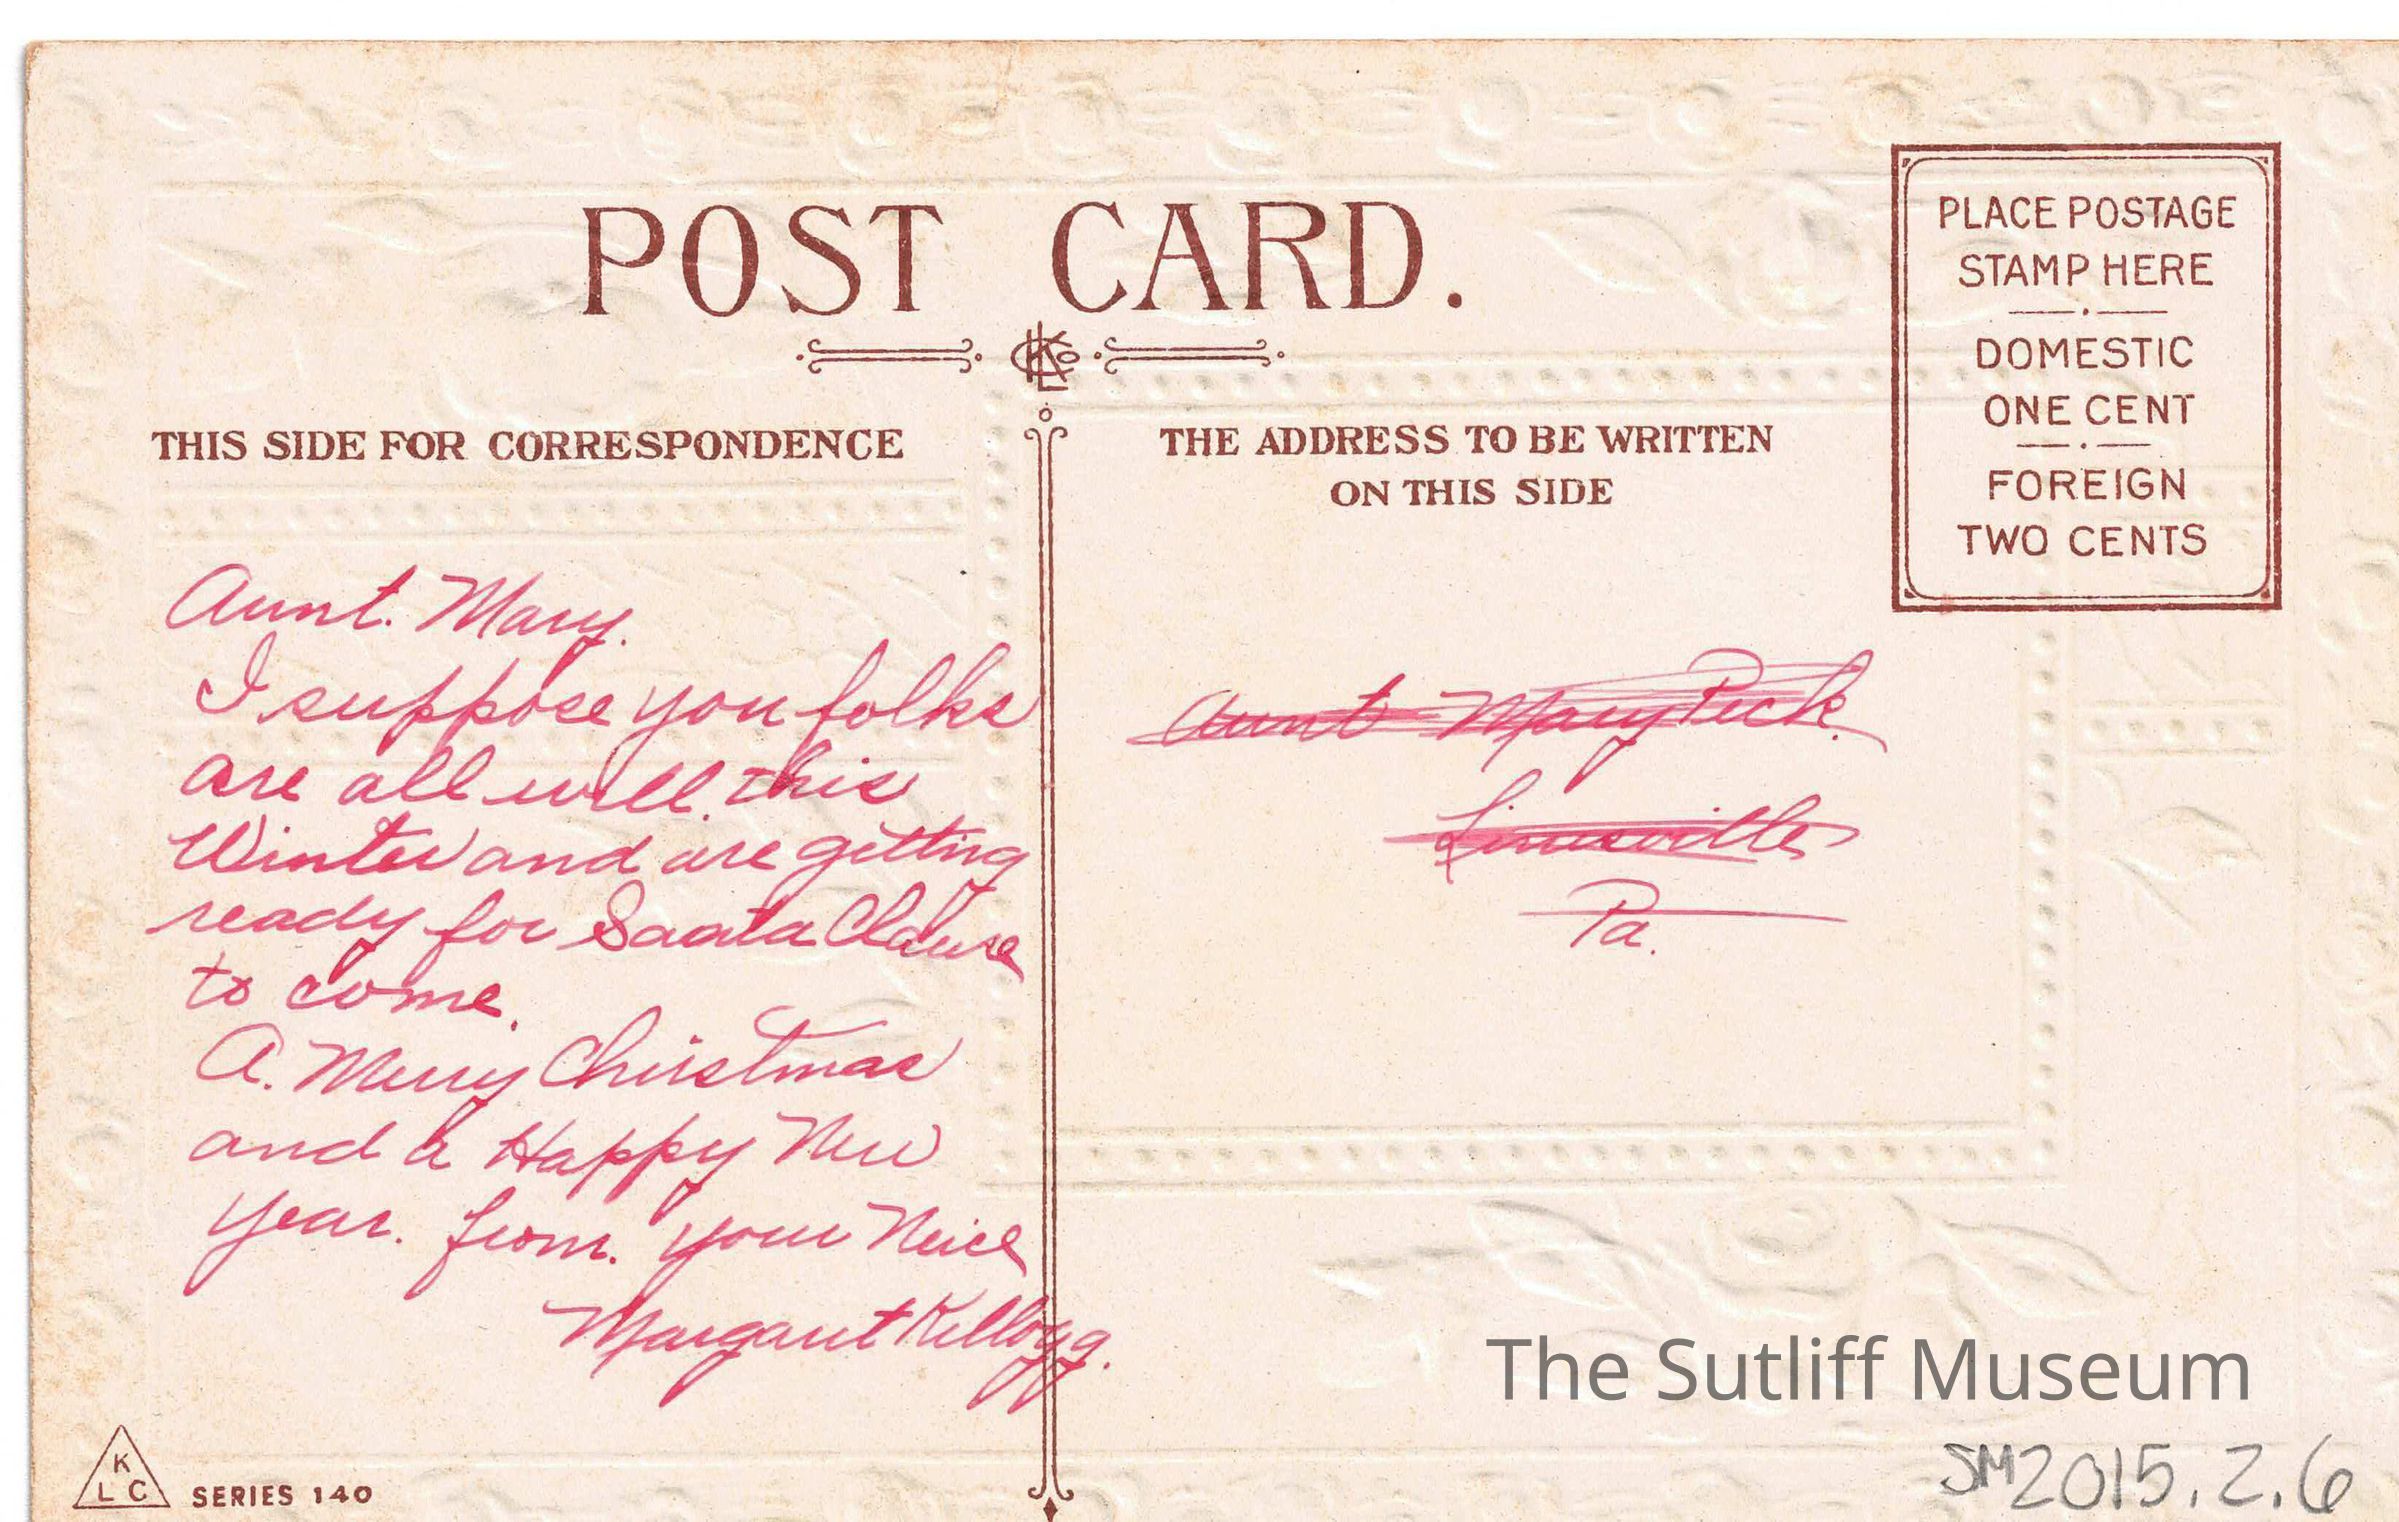 POST CARD.
CKLCo
THIS SIDE FOR CORRESPONDENCE
Aunt. Mary.
I suppose you folks
are all well. this
Winter and are getting
ready for Saata Clause
to come.
A. Merry Christmas
and a Happy New
Year. from. your Neice
Margaret Kellogg.
K
L C
SERIES 140
THE ADDRESS TO BE WRITTEN
ON THIS SIDE
PLACE POSTAGE
STAMP HERE
DOMESTIC
ONE CENT
FOREIGN
TWO CENTS
Aunt Mary Peck.
Linesville
Pa.
The Sutliff Museum
SM2015.2.6